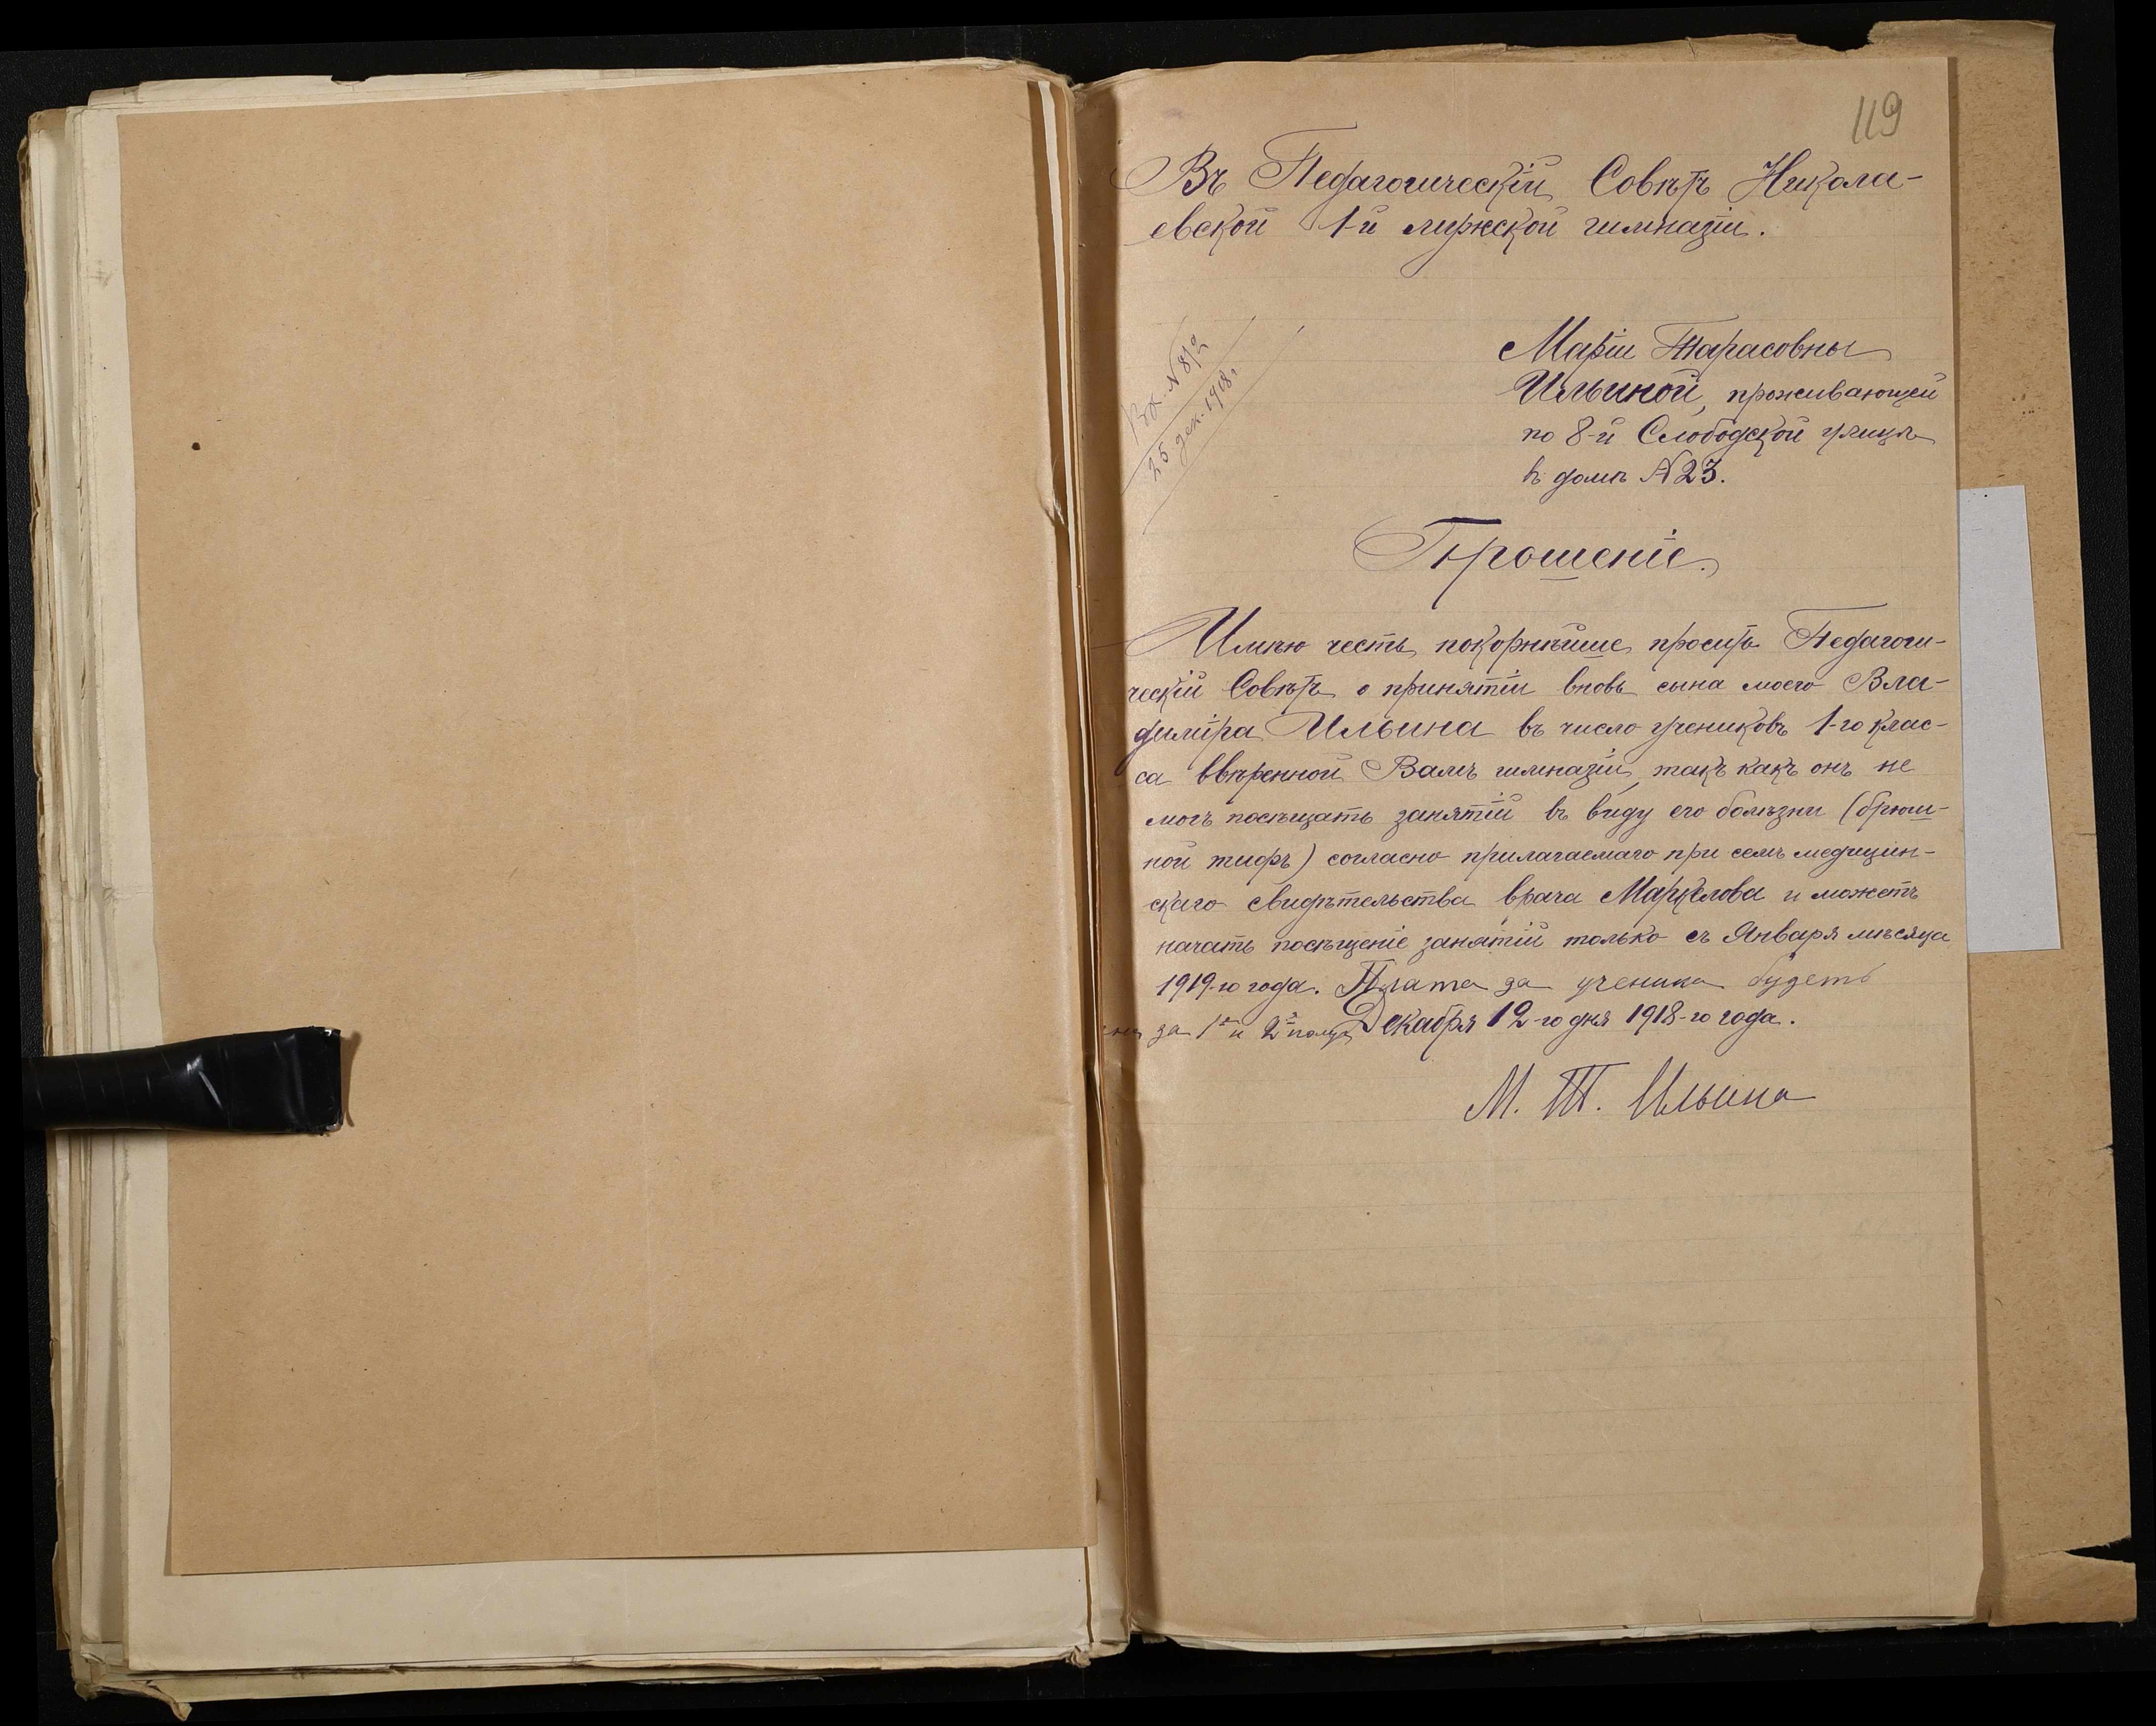 119
Въ Педагогическій Совѣтъ Никола-
евской 1-й мужской гимназіи.
Вх. N 812
25 дек. 1918 г.
Маріи Тарасовны
Ильиной, проживающей
по 8-й Слободской улицѣ
въ домѣ N23.
Прошеніе.
Имѣю честь покорнѣйше просить Педагоги-
ческій Совѣтъ о принятіи вновь сына моего Вла-
диміра Ильина въ число учениковъ 1-го клас-
са ввѣренной Вамъ гимназіи, такъ какъ онъ не
могъ посѣщать занятій въ виду его болѣзни (брюш-
ной тифъ) согласно прилагаемаго при семъ медицин-
скаго свидѣтельства врача Маркелова и можетъ
начать посѣщеніе занятій только съ Января мѣсяца
1919-го года. Плата за ученика будетъ
за 1е и 2е полуг. Декабря 12-го дня 1918-го года.
М. Т. Ильина